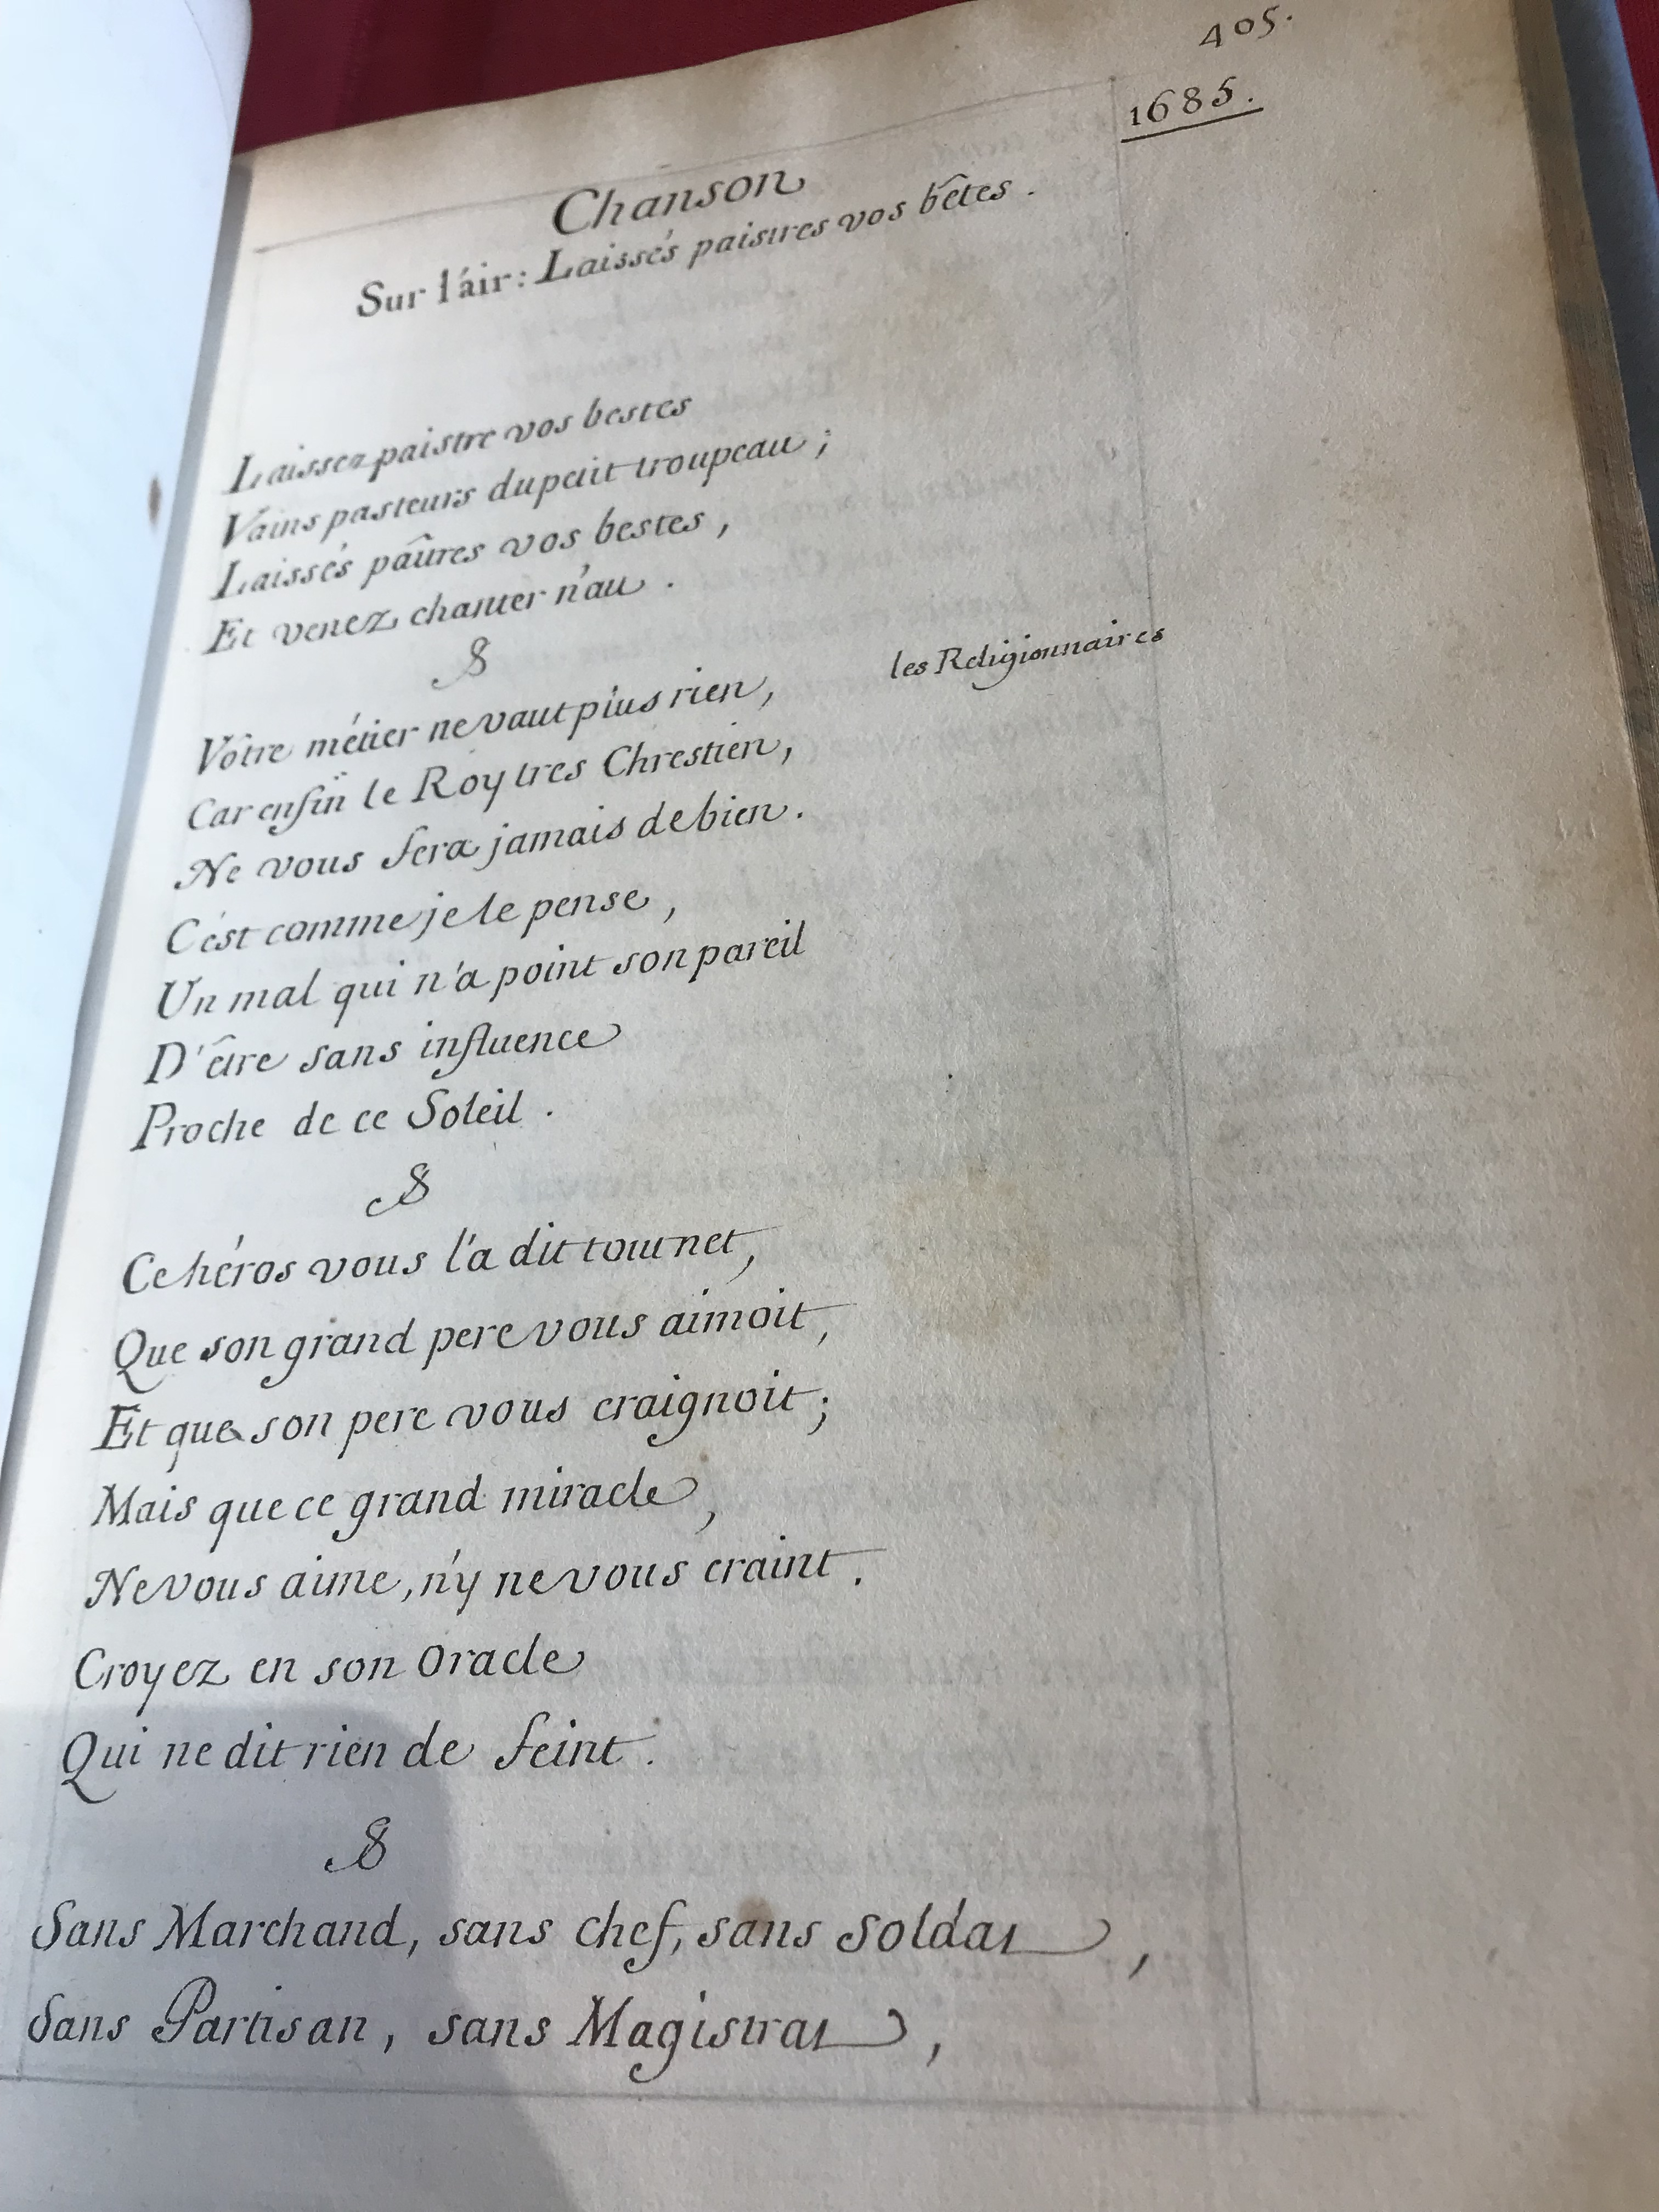 405.
1685.
Chanson
Sur l'air: Laissés paistres vos bêtes.
Laissez paistre vos bestes
Vains pasteurs du petit troupeau;
Laissés paîtres vos bestes,
Et venez chanter n'au.
Vôtre métier ne vaut plus rien,
les Religionnaires
Car enfin le Roy tres Chrestien,
Ne vous fera jamais de bien.
C'est comme je le pense,
Un mal qui n'a point son pareil
D'être sans influence
Proche de ce Soleil.
Ce héros vous l'a dit tout net,
Que son grand pere vous aimoit,
Et que son pere vous craignoit;
Mais que ce grand miracle,
Ne vous aime, n'y ne vous craint.
Croyez en son Oracle
Qui ne dit rien de feint.
Sans Marchand, sans chef, sans Soldat,
Sans Partisan, sans Magistrat,